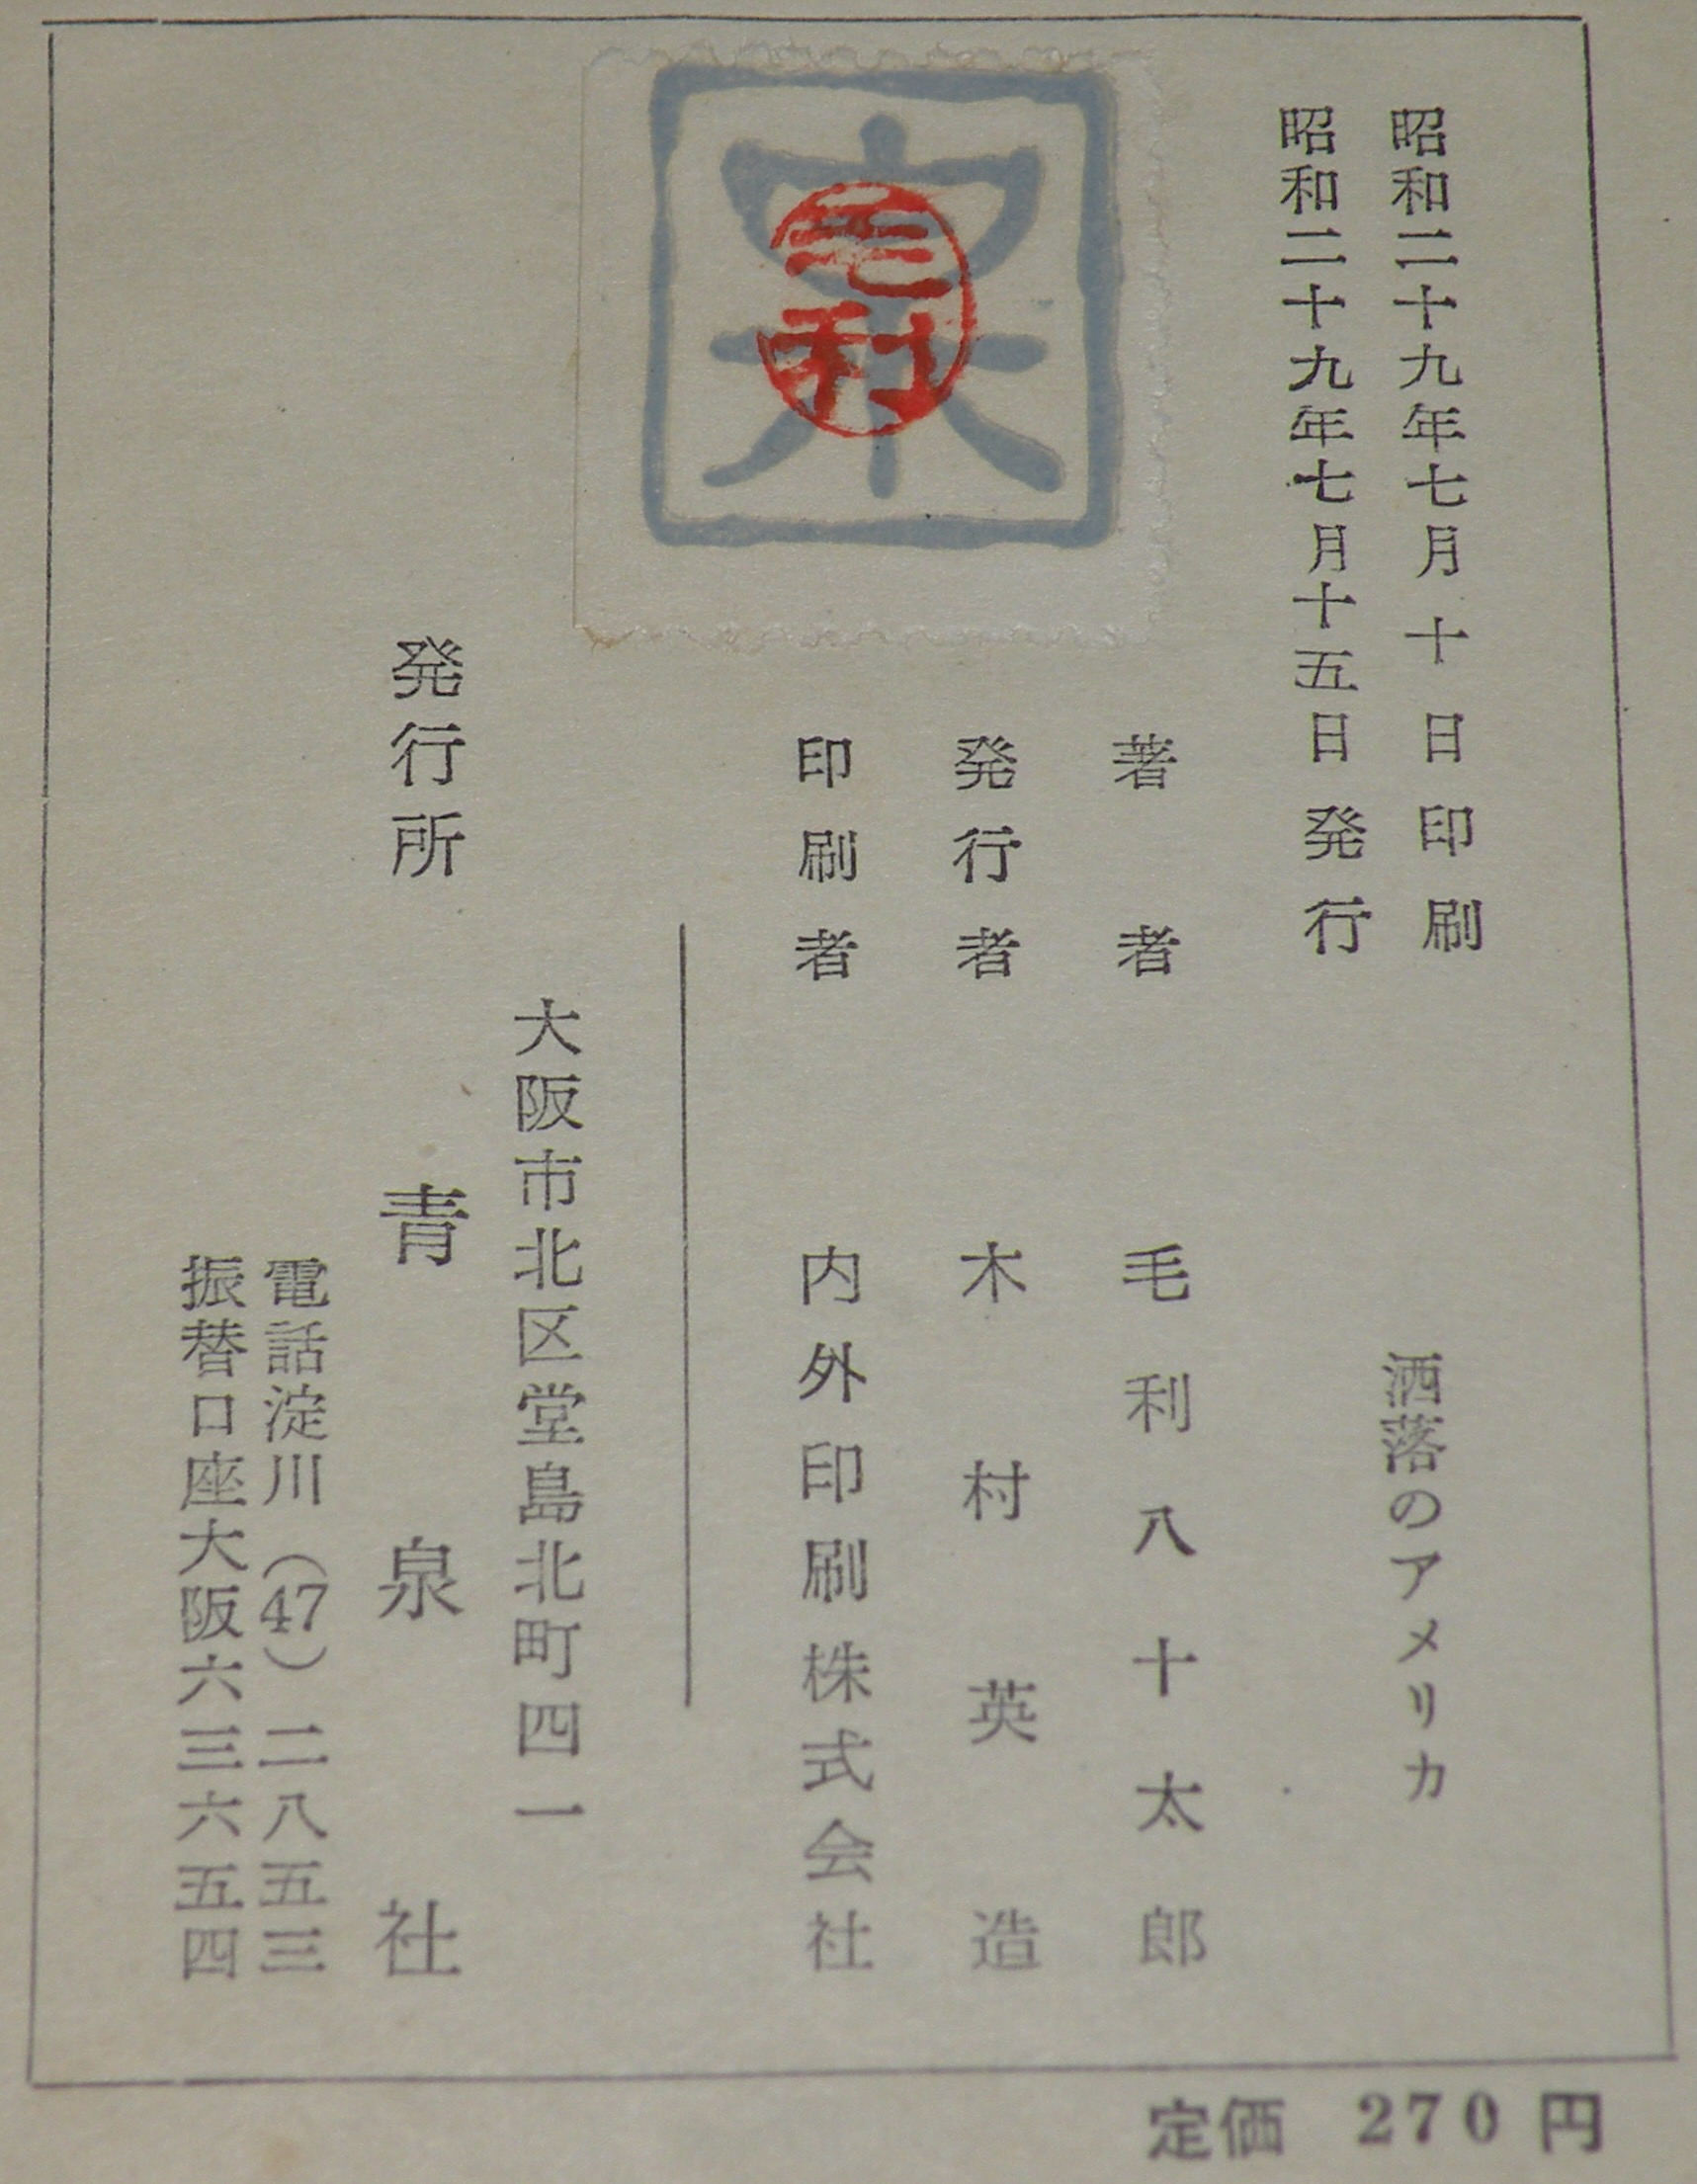 昭和二十九年七月十日印刷
昭和二十九年七月十五日発行
洒落のアメリカ
著者 毛利八十太郎
発行者 木村英造
印刷者 内外印刷株式会社
泉
毛利
大阪市北区堂島北町四一
発行所 青泉社
電話淀川(47)二八五三
振替口座大阪六三六五四
定価 270円